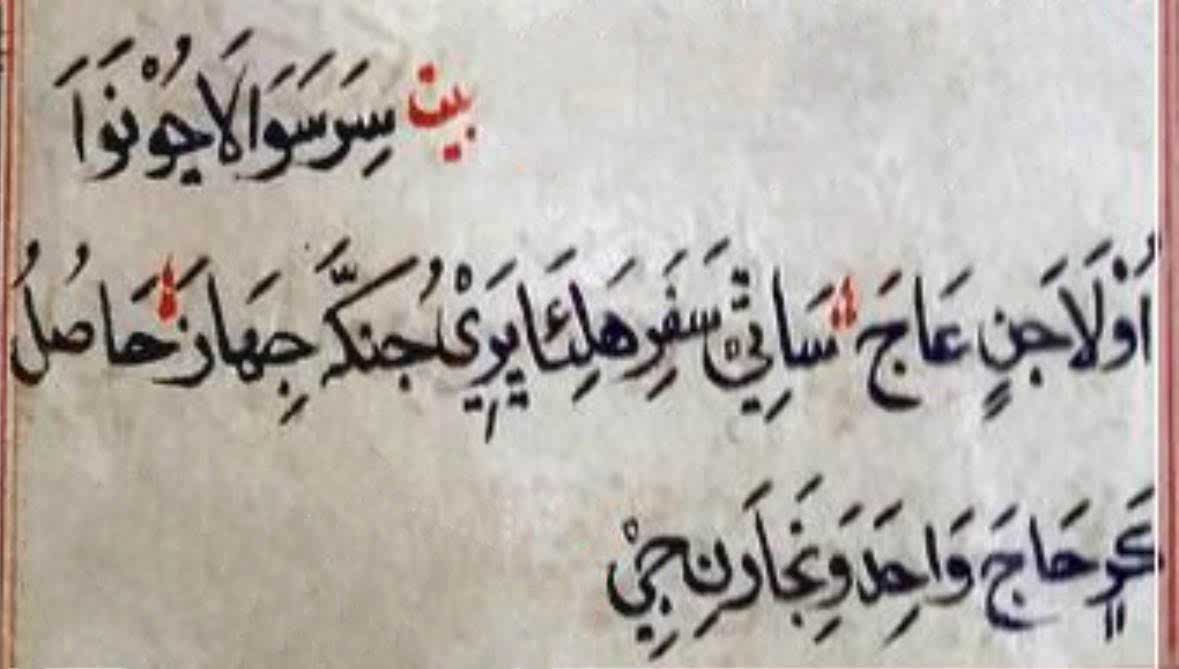 بيت سِرَسَوَالَاجُوْنَوَاَ
اُوْلَاجَنِ عَاجَ سَاتِيْ سَفَرِ هَلِئَا يَرِيْ جُنکَّہ جِهَازَ حَاصُلُ
حَاجَ وَاحِدَ وَنجَارَنِ جِيْ